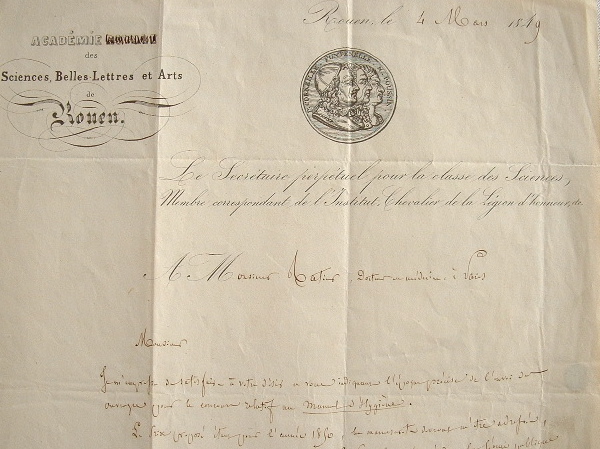 Rouen, le 4 Mars 1849
ACADÉMIE
des
Sciences, Belles-Lettres et Arts
de
Rouen.
CORNEILLE FONTENELLE N. POUSSIN
Le Secrétaire perpétuel pour la classe des Sciences,
Membre correspondant de l'Institut, Chevalier de la Légion d'honneur, &c.
A Monsieur Docteur en médecine, à Paris
Monsieur
Je m'empresse de satisfaire à votre désir en vous indiquant l'époque précise de l'envoi des
ouvrages pour le concours relatif au Manuel d'Hygiène.
Le Prix proposé étant pour l'année 1850, les manuscrits devront être adressés,
publique